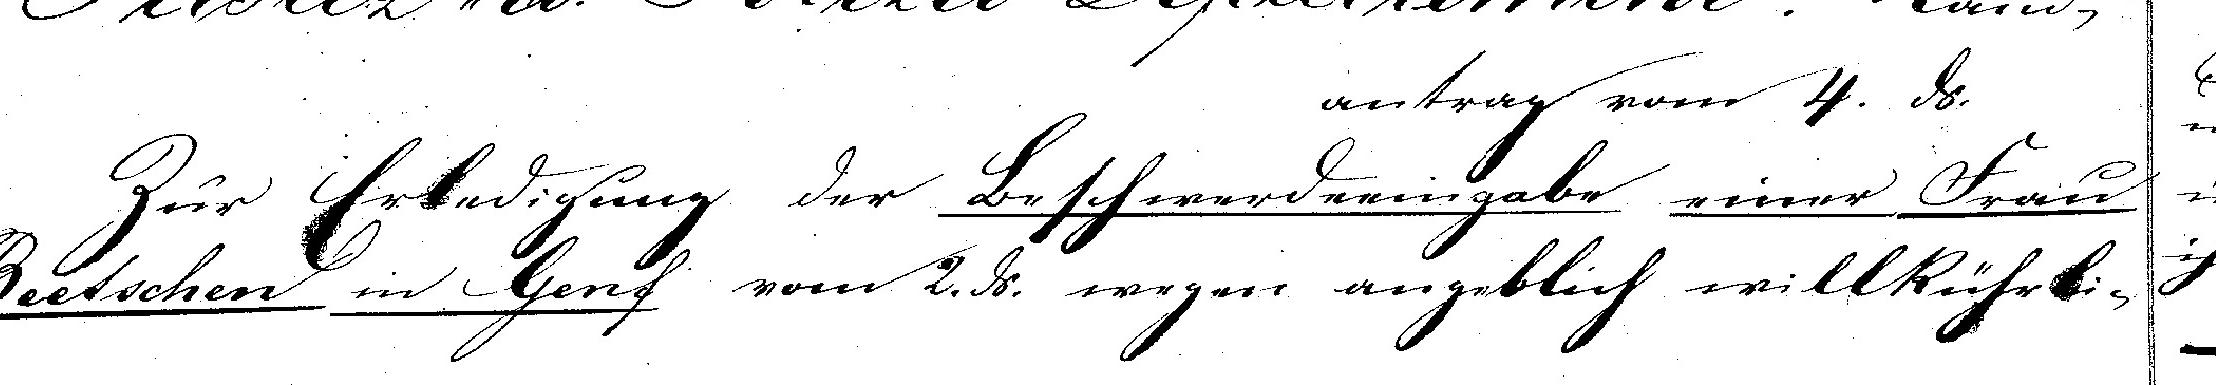 Justiz u. Polizei Departement. Rand-
antrag vom 4. ds.
Zur Erledigung der Beschwerdeeingabe einer Frau
Beetschen in Genf vom 2. ds. wegen angeblich willkührli-